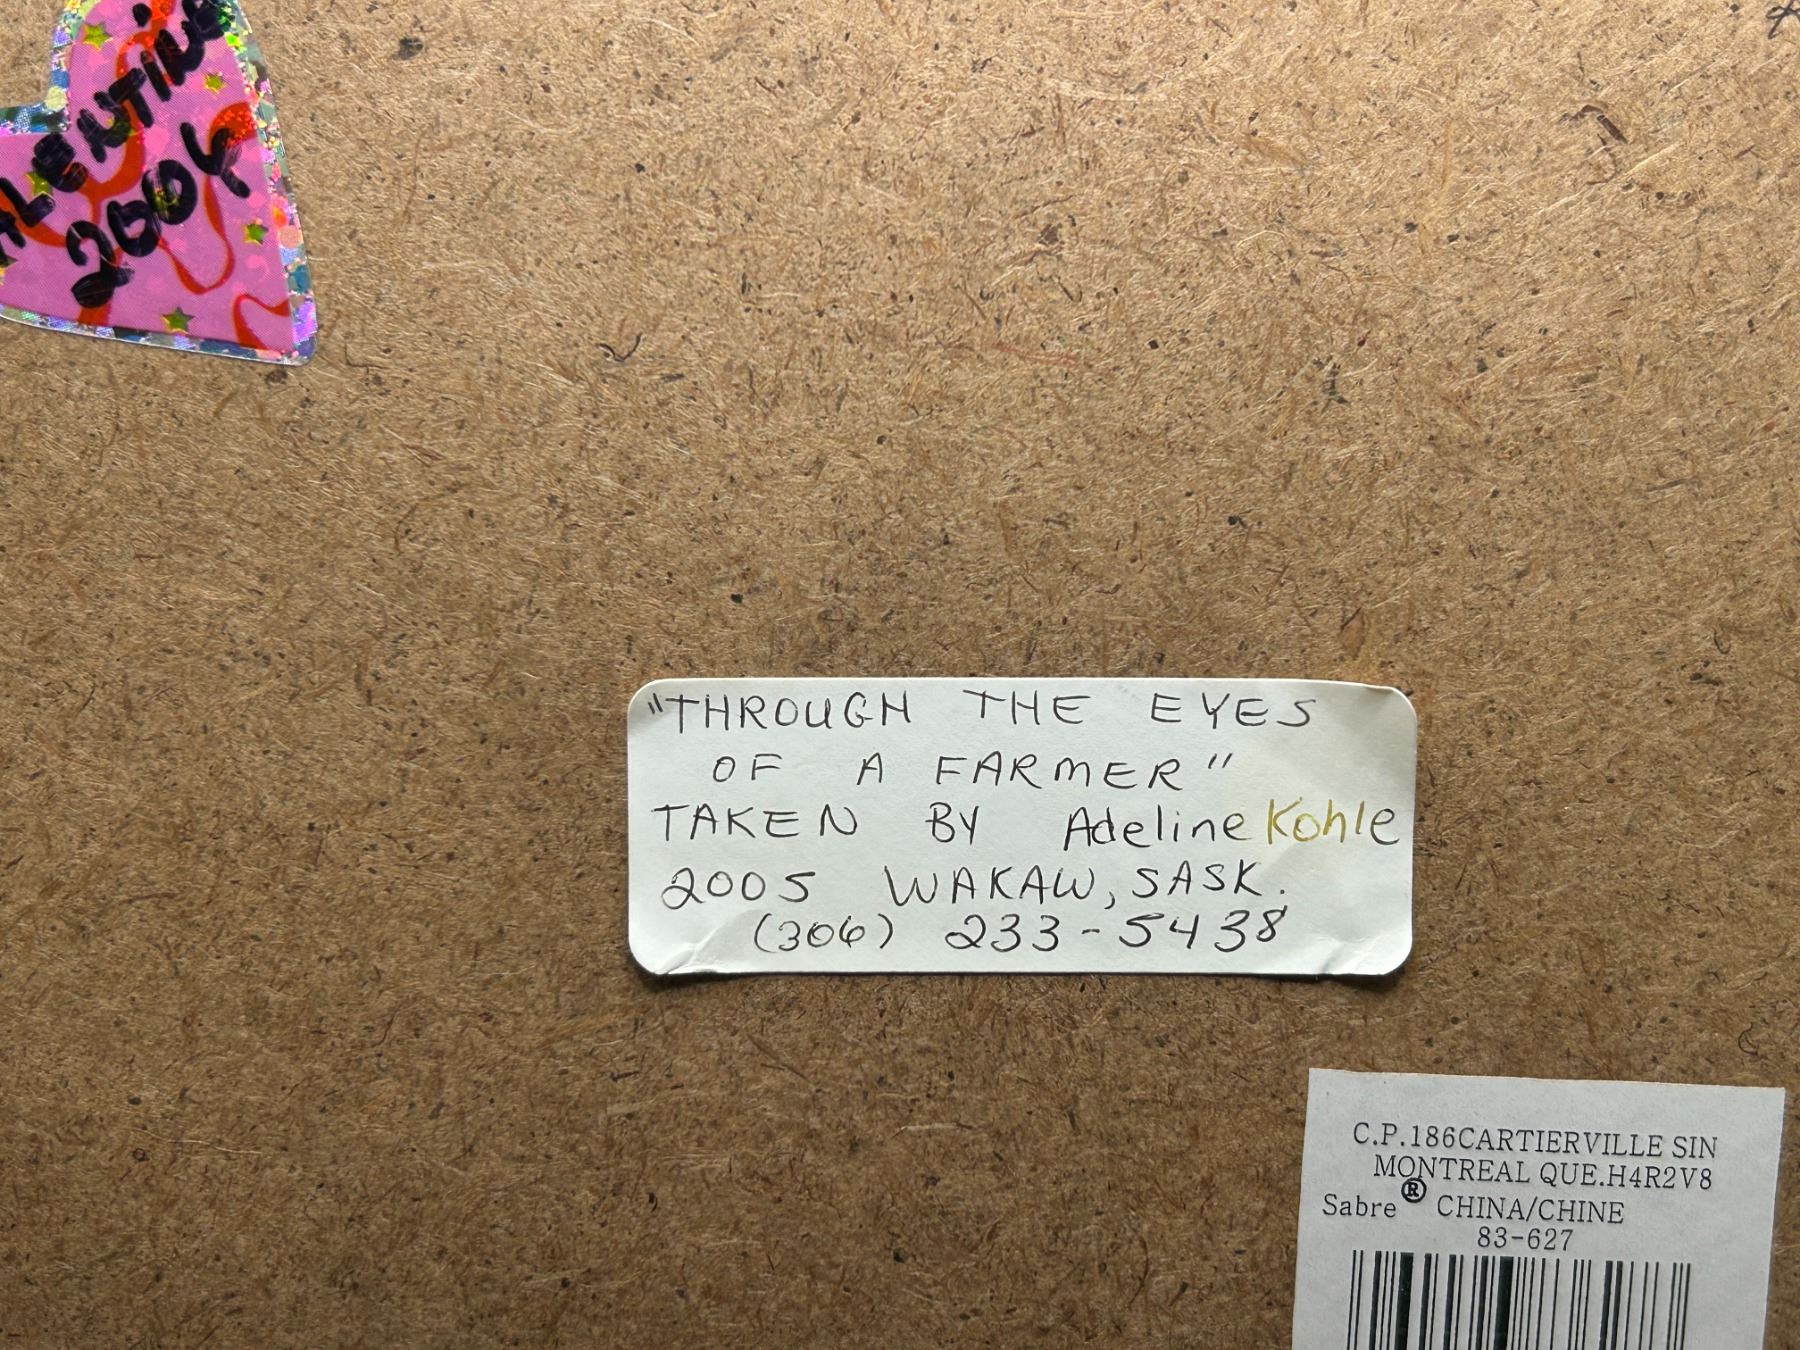 ALENTINE
2004
"THROUGH THE EYES
OF A FARMER"
TAKEN BY Adeline Kohle
2005 WAKAW, SASK.
(306) 233-5438
C.P.186CARTIERVILLE SIN
MONTREAL QUE.H4R2V8
Sabre ® CHINA/CHINE
83-627